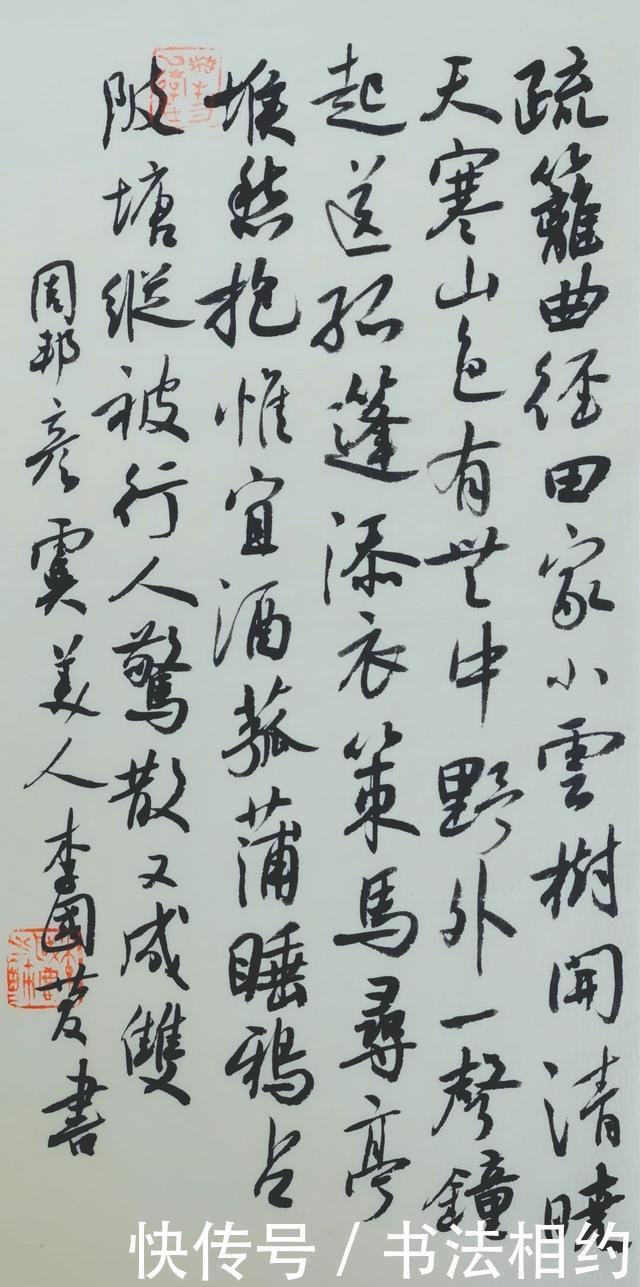 疏籬曲徑田家小雲樹開清曉
天寒山色有無中野外一聲鐘
起送孤篷添衣策馬尋亭
堠愁抱惟宜酒菰蒲睡鴉占
陂塘縱被行人驚散又成雙
周邦彥虞美人李國英書
快传号/书法相约